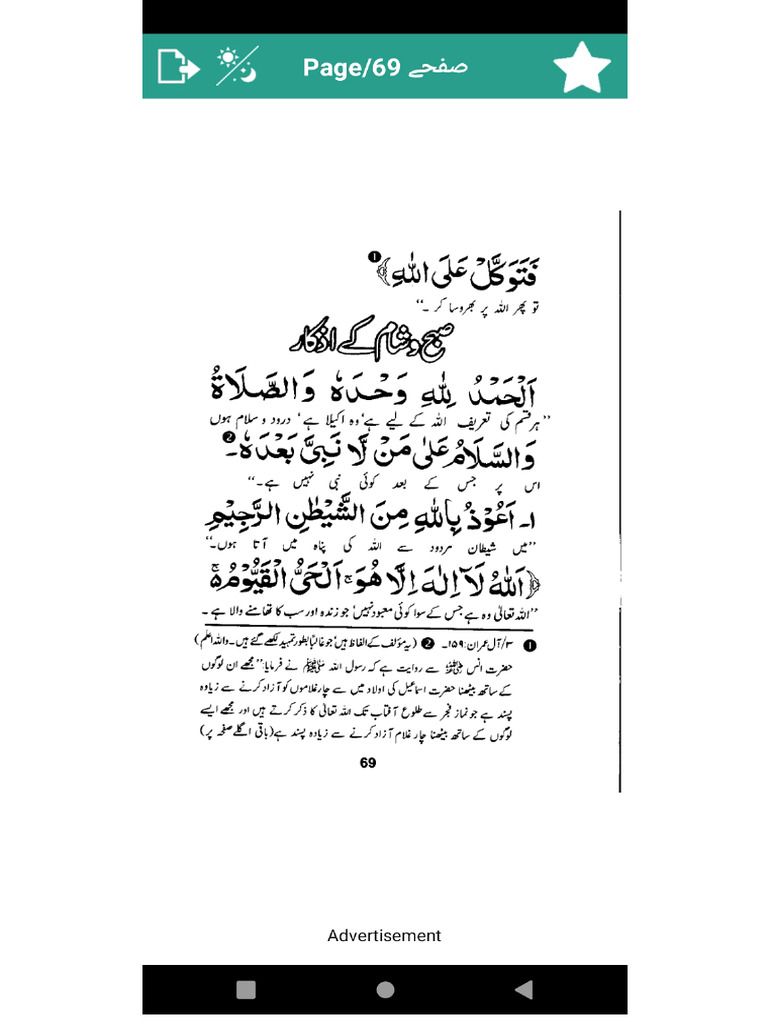 Page/69 صفحے
فَتَوَكَّلْ عَلَى اللّٰهِ﴾ ❶
تو پھر اللہ پر بھروسا کر ۔‘‘
صبح و شام کے اذکار
اَلْحَمْدُ لِلّٰهِ وَحْدَهٗ وَالصَّلَاةُ
’’ہر قسم کی تعریف اللہ کے لیے ہے‘ وہ اکیلا ہے‘ درود و سلام ہوں
وَالسَّلَامُ عَلٰی مَنْ لَّا نَبِیَّ بَعْدَهٗ ۔ ❷
اس پر جس کے بعد کوئی نبی نہیں ہے۔‘‘
۱۔ اَعُوْذُ بِاللّٰهِ مِنَ الشَّيْطٰنِ الرَّجِيْمِ
’’میں شیطان مردود سے اللہ کی پناہ میں آتا ہوں۔‘‘
﴿اَللّٰهُ لَآ اِلٰهَ اِلَّا هُوَ ۚ اَلْحَیُّ الْقَيُّوْمُ ۚ۵
’’اللہ تعالیٰ وہ ہے جس کے سوا کوئی معبود نہیں‘ جو زندہ اور سب کا تھامنے والا ہے ۔
❶ ۳/آل عمران:۱۵۹۔ ❷ (یہ مؤلف کے الفاظ ہیں‘ جو غالبا بطور تمہید لکھے گئے ہیں۔ واللہ اعلم)
حضرت انس ﷜ سے روایت ہے کہ رسول اللہ ﷺ نے فرمایا:’’مجھے ان لوگوں
کے ساتھ بیٹھنا حضرت اسماعیل کی اولاد میں سے چار غلاموں کو آزاد کرنے سے زیادہ
پسند ہے جو نماز فجر سے طلوع آفتاب تک اللہ تعالیٰ کا ذکر کرتے ہیں اور مجھے ایسے
لوگوں کے ساتھ بیٹھنا چار غلام آزاد کرنے سے زیادہ پسند ہے (باقی اگلے صفحہ پر)
69
Advertisement